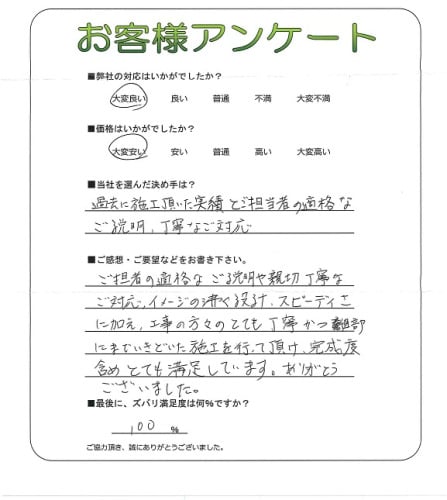 お客様アンケート
■弊社の対応はいかがでしたか？
大変良い 良い 普通 不満 大変不満
■価格はいかがでしたか？
大変安い 安い 普通 高い 大変高い
■当社を選んだ決め手は？
過去に施工頂いた実績とご担当者の適格な
ご説明、丁寧なご対応
■ご感想・ご要望などをお書き下さい。
ご担者の適格なご説明や親切丁寧な
ご対応、イメージの沸く設計、スピーディさ
に加え、工事の方々のとても丁寧かつ細部
にまでいきとどいた施工を行って頂け、完成度
含めとても満足しています。ありがとう
ございました。
■最後に、ズバリ満足度は何％ですか？
100 %
ご協力頂き、誠にありがとうございました。